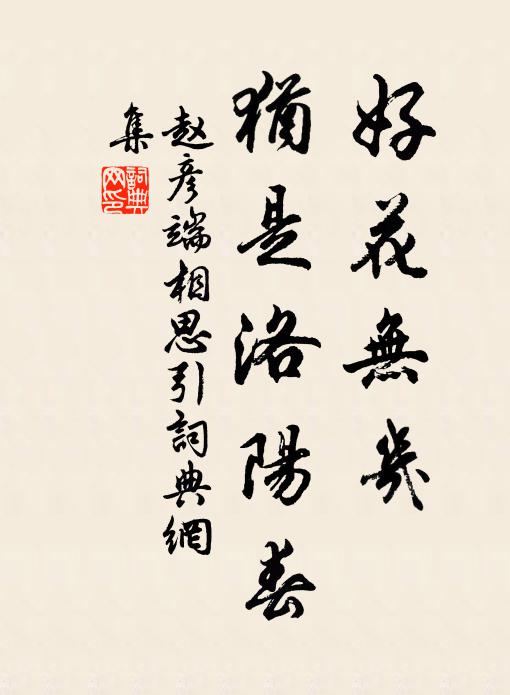 好花無幾
猶是洛陽春
赵彦端相思引詞典網
集
詞典網印